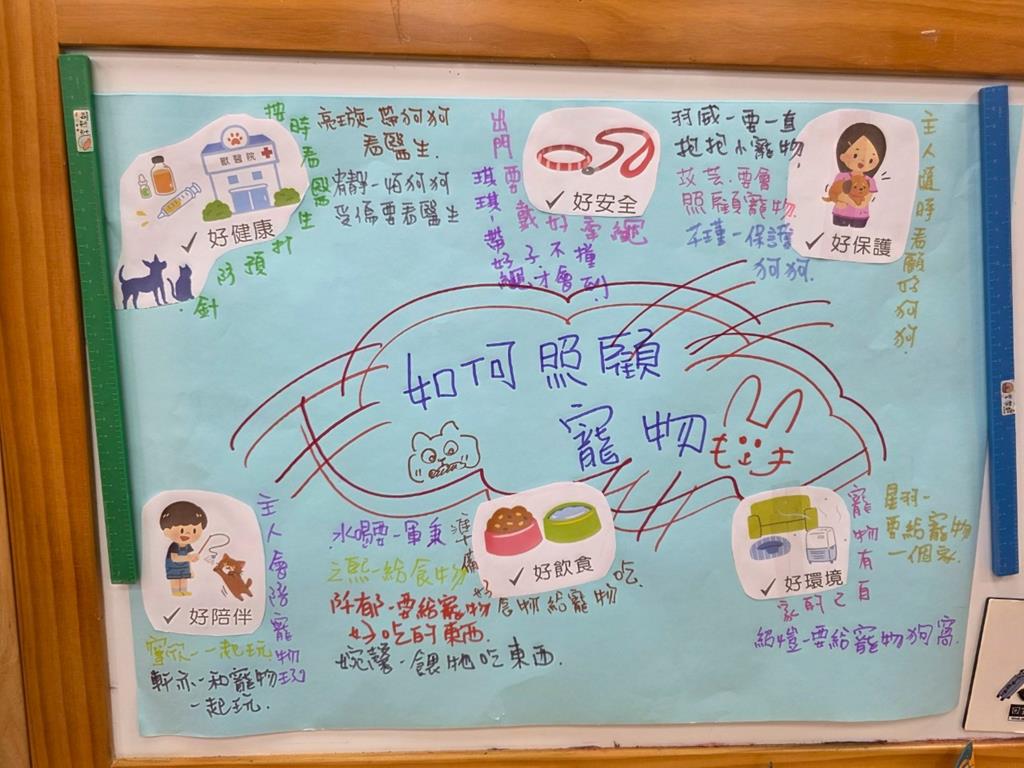 如何照顧
寵物
獸醫院
✓ 好健康
按時看醫生打預防針
亮璇-帶狗狗
看醫生.
靜-怕狗狗
受傷要看醫生
✓ 好安全
出門要戴好牽繩
琪琪-帶好繩子才不會撞到
✓ 好保護
羽威-要一直
抱抱小寵物.
苡芸-要會
照顧寵物.
瑾-保護
狗狗.
主人隨時看顧好狗狗
✓ 好陪伴
主人會陪寵物玩
寧欣-一起玩
軒亦-和寵物
一起玩.
✓ 好飲食
準備好食物給寵物吃
水喝要-軍秉
之熙-給食物
阡郁-要給寵物
好吃的東西.
婉馨-餵牠吃東西.
✓ 好環境
寵物有自己的家
星羽-
要給寵物
一個家.
紹愷-要給寵物狗窩.